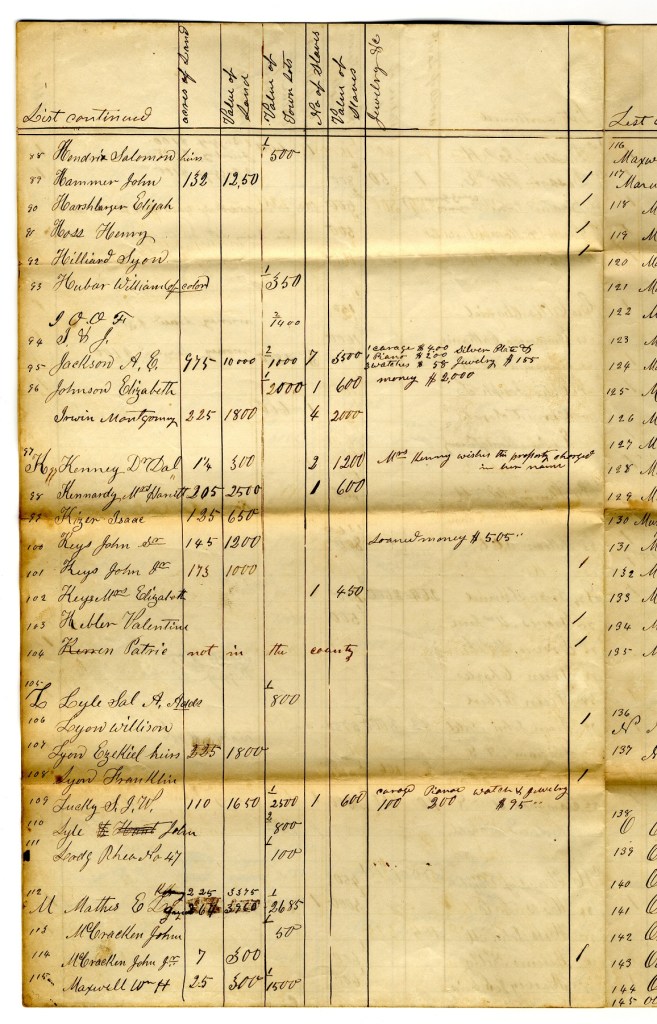 List continued acres of Land Value of Land Value of Town lots No of Slaves Value of Slaves Jewelry &c
88 Hendrix Salomon heirs 1/500
89 Hammer John 132 12,50 1
90 Harshbarger Elijah 1
91 Hoss Henry 1
92 Hilliard Lyon 1
93 Hubar William of color 1/350
I O O F 2/1400
94 I & J.
95 Jackson A. E. 975 10000 2/1000 7 3500 1 carage $400 Silver Plate &
1 Piano $200
3 watches $58 Jewelry $155
96 Johnson Elizabeth 1/2000 1 600 money $2,000
Irwin Montgomery 225 1800 4 2000
97
K Kenney Dr Dal 1¼ 300 2 1200 Mrs Kenny wishes the property charged
in her name
98 Kennardy Mrs 205 2500 1 600
99 Kizer Isaac 125 650
100 Keys John Sr 145 1200 Loaned money $505
101 Keys John Jr 173 1000 1
102 Keys Mrs Elizabeth 1 450
103 Valentine 1
104 Patric not in the county 1
105
L Lyle Sal A. 1/800
106 Lyon Willison 1
107 Lyon Ezekiel heirs 225 1800
108 Lyon Franklin 1
109 Lucky S. J. W. 110 1650 1/2500 1 600 carage 100 Pianoe 200 watch & Jewelry $95
110 Lyle John 2/800
111 Rhea No 47 1/100
112 225 3375
M Mathis E 1/2685
113 McCracken John 1/50
114 McCracken John Jr 7 300 1
115 Maxwell Wm H 25 300 1/1500
List
116
Maxw
117
118 M
119 M
120 M
121 M
122 M
123 M
124 M
125 M
126 M
127 M
128 M
129 M
130
131 M
132 M
133 M
134 M
135 M
136
N
137
138
O
139
140
141
142
143
144
145